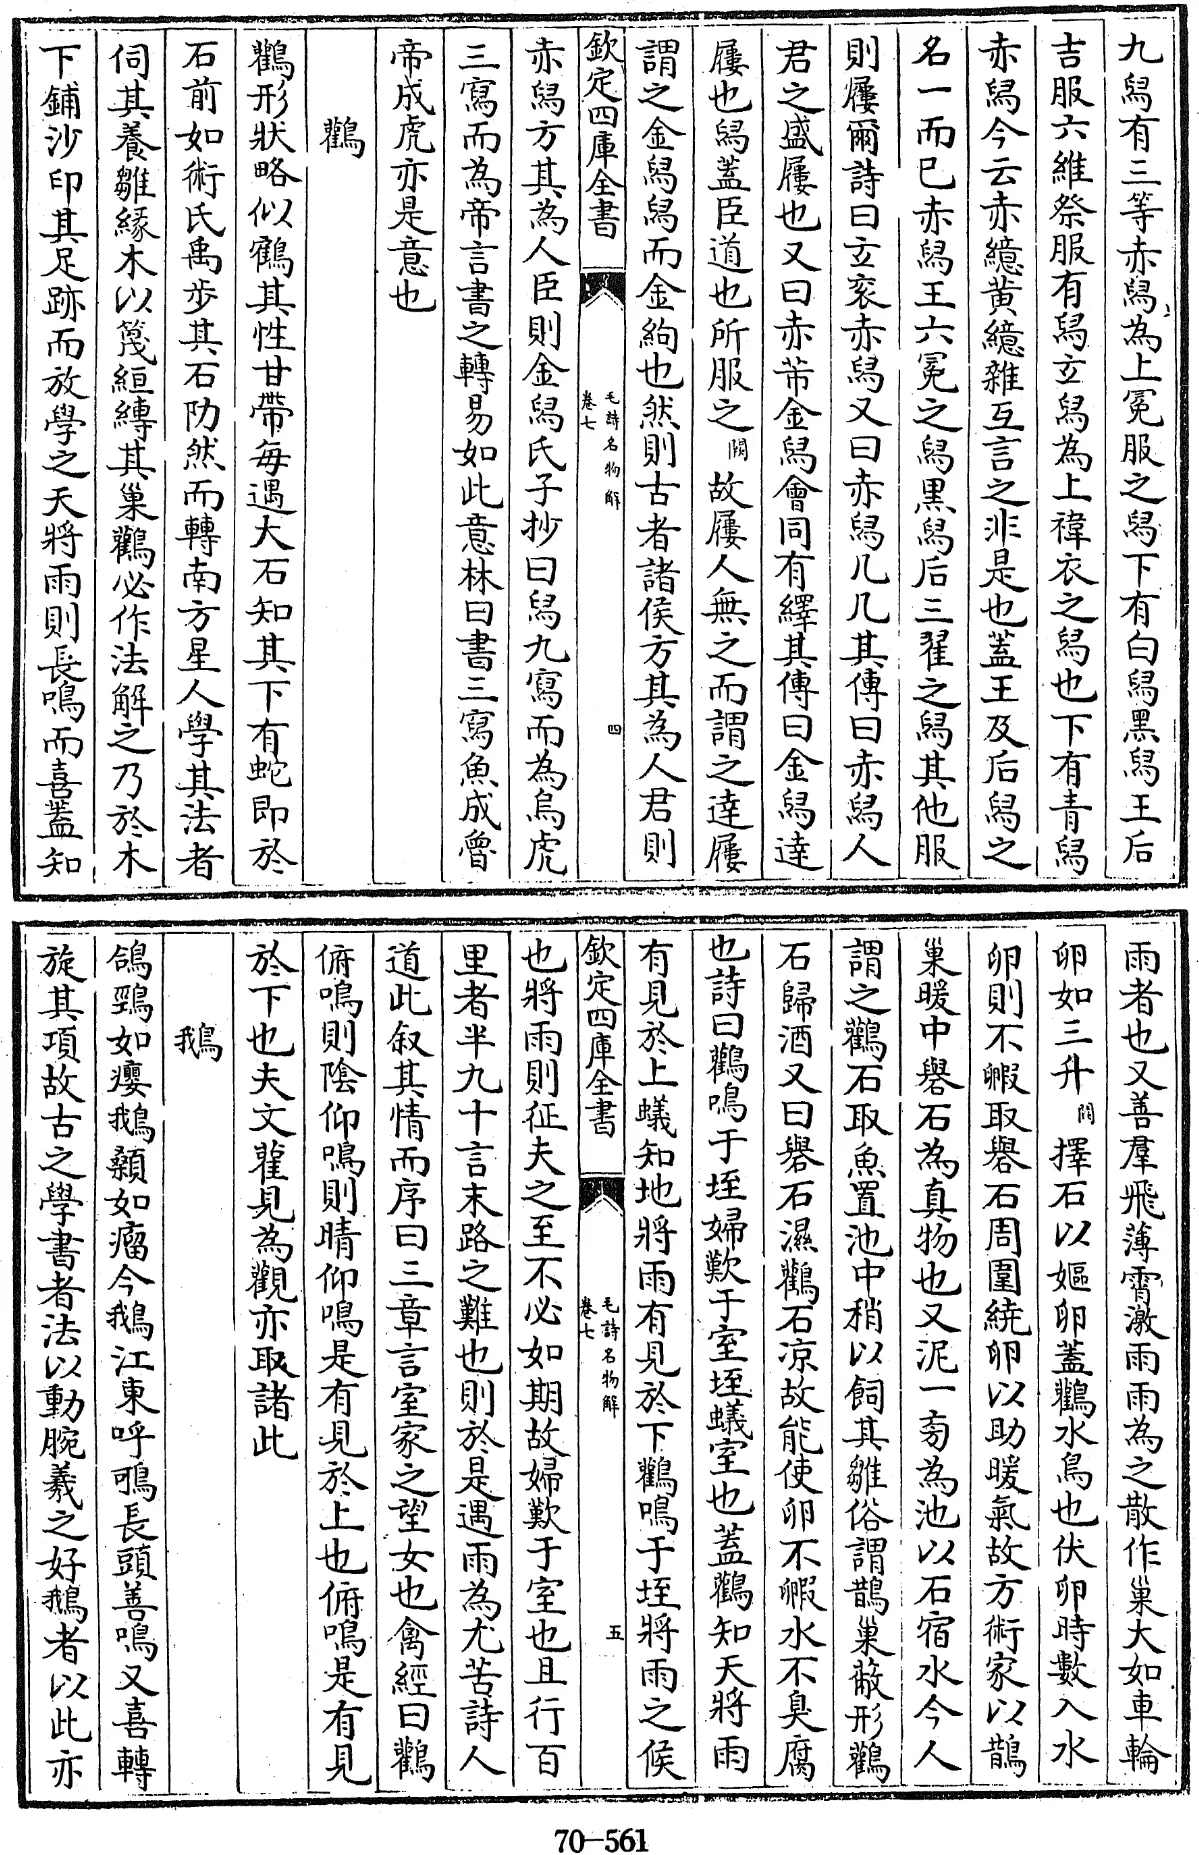 九舄有三等赤舄為上冕服之舄下有白舄黑舄王后
吉服六維祭服有舄玄舄為上褘衣之舄也下有青舄
赤舄今云赤繶黄繶雜互言之非是也蓋王及后舄之
名一而已赤舄王六冕之舄黒舄后三翟之舄其他服
則屨爾詩曰玄衮赤舄又曰赤舄几几其傳曰赤舄人
君之盛屨也又曰赤芾金舄會同有繹其傳曰金舄達
屨也舄蓋臣道也所服之闕故屨人無之而謂之達屨
謂之金舄舄而金絇也然則古者諸侯方其為人君則
欽定四庫全書
毛詩名物解
卷七
四
赤舄方其為人臣則金舄氏子抄曰舄九寫而為烏虎
三寫而為帝言書之轉易如此意林曰書三寫魚成魯
帝成虎亦是意也
鸛
鸛形狀略似鶴其性甘帶每遇大石知其下有蛇即於
石前如術氏禹步其石阞然而轉南方星人學其法者
伺其養雛緣木以篾絙縛其巢鸛必作法解之乃於木
下鋪沙印其足跡而放學之天將雨則長鳴而喜蓋知
雨者也又善羣飛薄霄激雨雨為之散作巢大如車輪
卵如三升闕擇石以嫗卵蓋鸛水鳥也伏卵時數入水
卵則不毈取礜石周圍繞卵以助暖氣故方術家以鵲
巢暖中礜石為真物也又泥一旁為池以石宿水今人
謂之鸛石取魚置池中稍以飼其雛俗謂鵲巢蔽形鸛
石歸酒又曰礜石濕鸛石凉故能使卵不毈水不臭腐
也詩曰鸛鳴于垤婦歎于室垤蟻室也蓋鸛知天將雨
有見於上蟻知地將雨有見於下鸛鳴于垤將雨之候
欽定四庫全書
毛詩名物解
卷七
五
也將雨則征夫之至不必如期故婦歎于室也且行百
里者半九十言末路之難也則於是遇雨為尤苦詩人
道此叙其情而序曰三章言室家之望女也禽經曰鸛
俯鳴則陰仰鳴則晴仰鳴是有見於上也俯鳴是有見
於下也夫文雚見為觀亦取諸此
鵝
鴿頸如癭鵝顙如瘤今鵝江東呼鴚長頭善鳴又喜轉
旋其項故古之學書者法以動腕羲之好鵝者以此亦
70-561